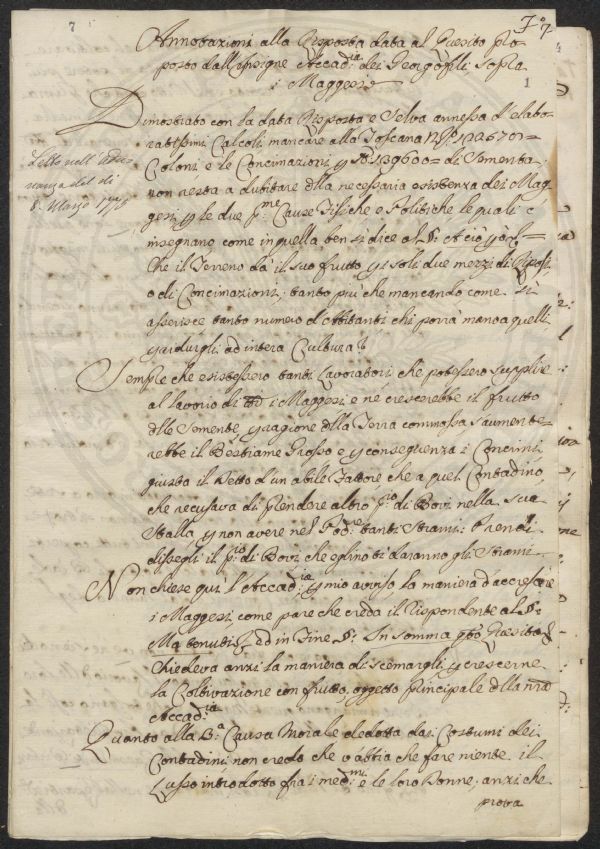 7
7° 7
1
Annotazioni alla Risposta data al Quesito pro-
posto dall'Insigne Accad:ia dei Georgofili sopra
i Maggesi
Dimostrato con la data Risposta e Selva annessa d'elabo-
ratissimi Calcoli, mancare alla Toscana N.° 122670=
Coloni e le Concimazioni p S:a 139600= di Sementa,
non resta a dubitare dlla necessaria esistenza dei Mag-
gesi p le due p:me Cause Fisiche e Politiche le quali c'
insegnano come in quella ben si dice al §.
Che il Terreno dà il suo frutto p i soli due mezzi di Riposi
o di Concimazioni; tanto più che mancando come si
asserisce tanto numero d'Abitanti chi porrà mano a quelli
p ridurgli ad intera Cultura?
Letto nell'Adu-
nanza del dì
8. Marzo 1776
Semple che esistessero tanti Lavoratori che potessero supplire
al lavorio di i Maggesi e ne crescerebbe il frutto
dlle Semente p ragione dlla Terra commossa s'aumente-
rebbe il Bestiame Grosso e p conseguenza i Concimi,
giusto il Detto d'un abile Fattore che a quel Contadino,
che recusava di plendere altro p:ro di Bovi nella sua
Stalla p non avere nel Pod:re tanti Strami: Prendi
dissegli il p:ro di Bovi che eglino ti daranno gli Strami.
Non chiese quì l'Accad:ia p mio avviso la maniera d'accrescere
i Maggesi come pare che creda il Rispondente al §.
Ma ad in Fine §. In somma qto Quesito &
Chiedeva anzi la maniera di scemargli p crescerne
la Coltivazione con frutto, oggetto principale dlla nra
Accad:ia
Quanto alla B:a Causa Morale dedotta dai Costumi dei
Contadini non credo che v'abbia che fare niente il
Lusso introdotto fra i med:mi e le loro Donne, anzi che